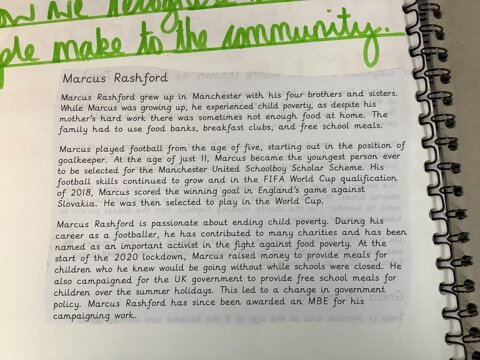 ow we recognise
ple make to the community.
Marcus Rashford
Marcus Rashford grew up in Manchester with his four brothers and sisters.
While Marcus was growing up, he experienced child poverty, as despite his
mother's hard work there was sometimes not enough food at home. The
family had to use food banks, breakfast clubs, and free school meals.
Marcus played football from the age of five, starting out in the position of
goalkeeper. At the age of just 11, Marcus became the youngest person ever
to be selected for the Manchester United Schoolboy Scholar Scheme. His
football skills continued to grow and in the FIFA World Cup qualification
of 2018, Marcus scored the winning goal in England's game against
Slovakia. He was then selected to play in the World Cup.
Marcus Rashford is passionate about ending child poverty. During his
career as a footballer, he has contributed to many charities and has been
named as an important activist in the fight against food poverty. At the
start of the 2020 lockdown, Marcus raised money to provide meals for
children who he knew would be going without while schools were closed. He
also campaigned for the UK government to provide free school meals for
children over the summer holidays. This led to a change in government
policy. Marcus Rashford has since been awarded an MBE for his
campaigning work.